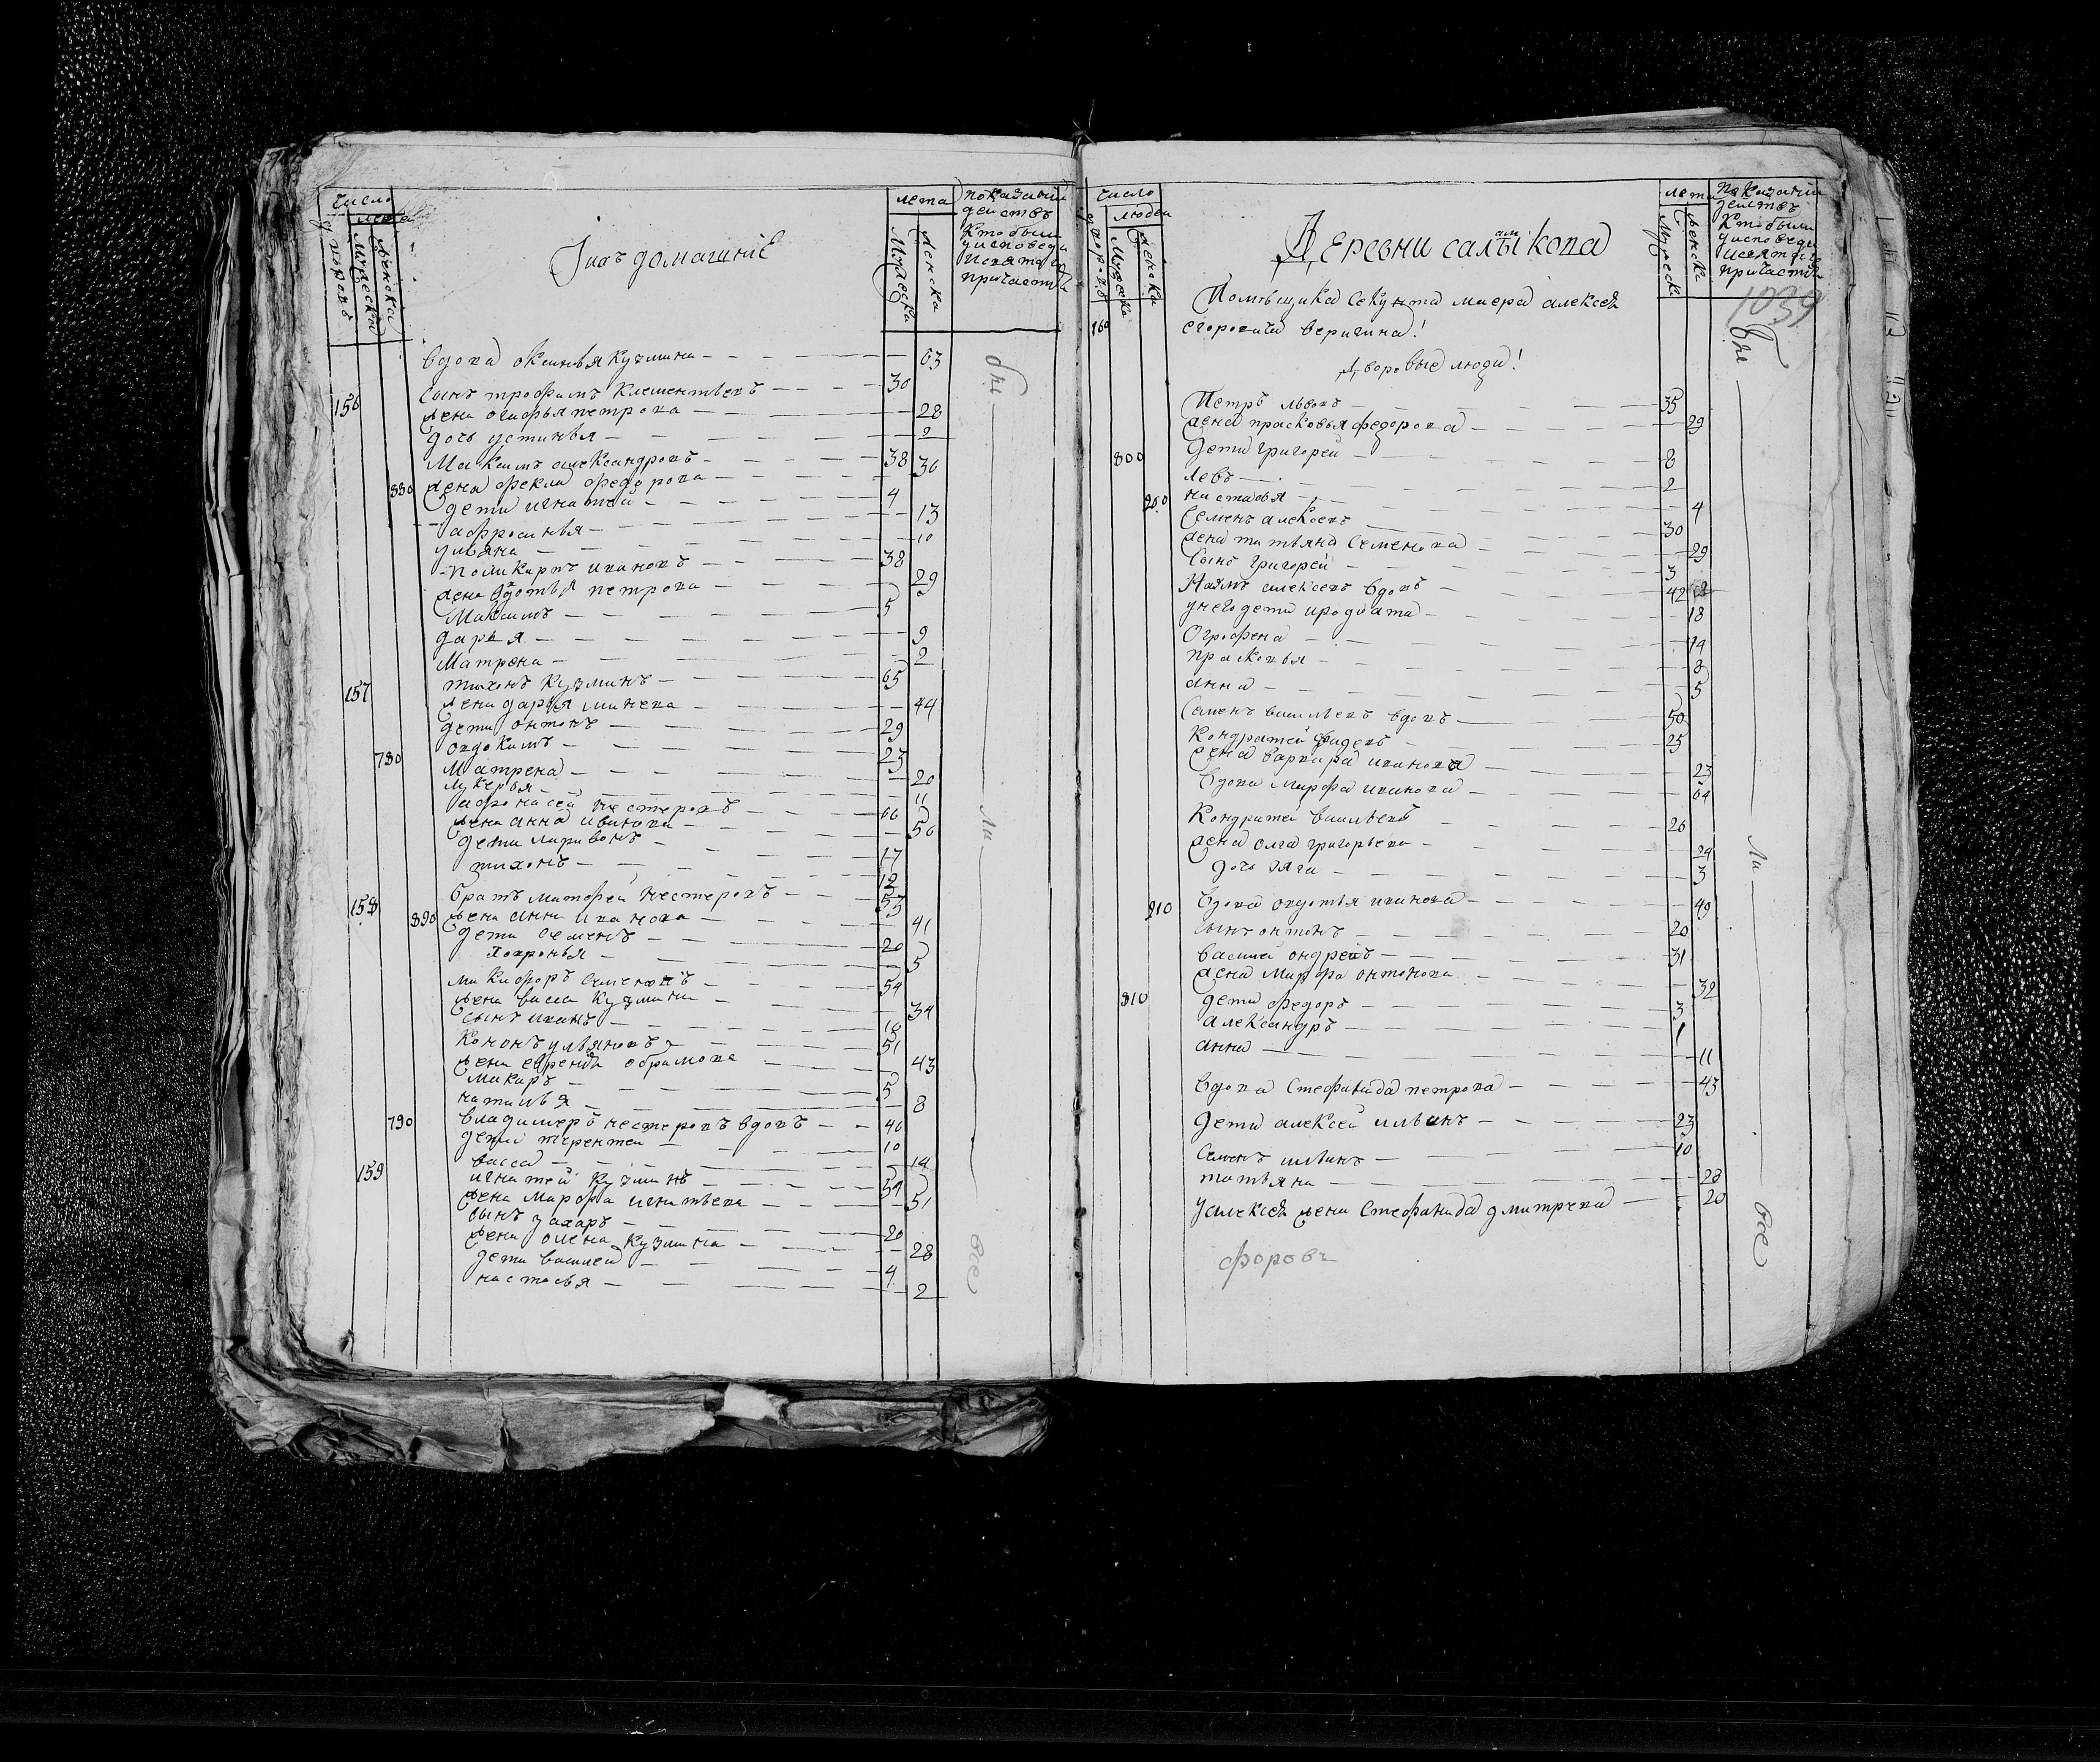 число
лета
показании
действъ
кто были
у исповеди
и святаго
причастия
Мужеска
Женска
Мужеска
Женска
И ихъ домашниЕ
вдова оксинья кузмина 63
сынъ трофимъ клементьевъ 30
156 жена огафья петрова 28
дочь устинья 2
Максимъ александровъ 38
880 жена фекла федорова 36
дети игнатей 4
афросинья 13
ульяна 10
поликарпъ ивановъ 38
жена овдотья петрова 29
Максимъ 5
дарья 9
Матрена 2
157 тихонъ кузминъ 65
жена дарья минеева 44
дети онтонъ 29
780 овдокимъ 23
Матрена 20
лукерья 11
афонасей нестеровъ 66
жена анна иванова 50
дети ларивонъ 17
тихонъ 12
братъ матфей нестеровъ 53
158 890 жена анна иванова 41
дети семенъ 20
ховронья 5
микифоръ семеновъ 54
жена васса кузмина 34
сынъ иванъ 10
кононъ ульяновъ 51
жена обрамова 43
макаръ 5
наталья 8
790 владимеръ нестеровъ вдовъ 40
дети терентей 10
васса 14
159 игнатей кузминъ 54
жена марфа игнатьева 51
сынъ захаръ 20
жена олена кузмина 28
дети василей 4
настасья 2
бы
ли
все
число
людей
лета
показании
действъ
кто были
у исповеди
и святаго
причастия
Мужеска
Женска
Мужеска
Женска
1039
Деревни салтыкова
160 Помѣщика секунта маеора алексея
егоровича веригина!
Дворовые люди!
Петръ львовъ 35
жена прасковья федорова 29
800 Дети григорей 8
левъ 2
900 настасья 4
Семенъ алексеевъ 30
жена татьяна семенова 29
сынъ григорей 3
Наумъ алексеевъ вдовъ 42
у него дети 18
Огрофена 14
прасковья 8
анна 5
Семенъ васильевъ вдовъ 50
кондратей 25
жена варвара иванова 23
вдова марфа иванова 64
кондратей васильевъ 26
жена олга григорьева 24
дочь 3
910 вдова овдотья иванова 49
сынъ онтонъ 20
василей ондреевъ 31
жена марфа онтонова 32
810 дети федоръ 3
александръ 1
анна 11
вдова стефанида петрова 43
дети алексей ильинъ 23
Семенъ ильинъ 10
татьяна 28
у алексея жена стефанида дмитрева 20
бы
ли
все
форовъ